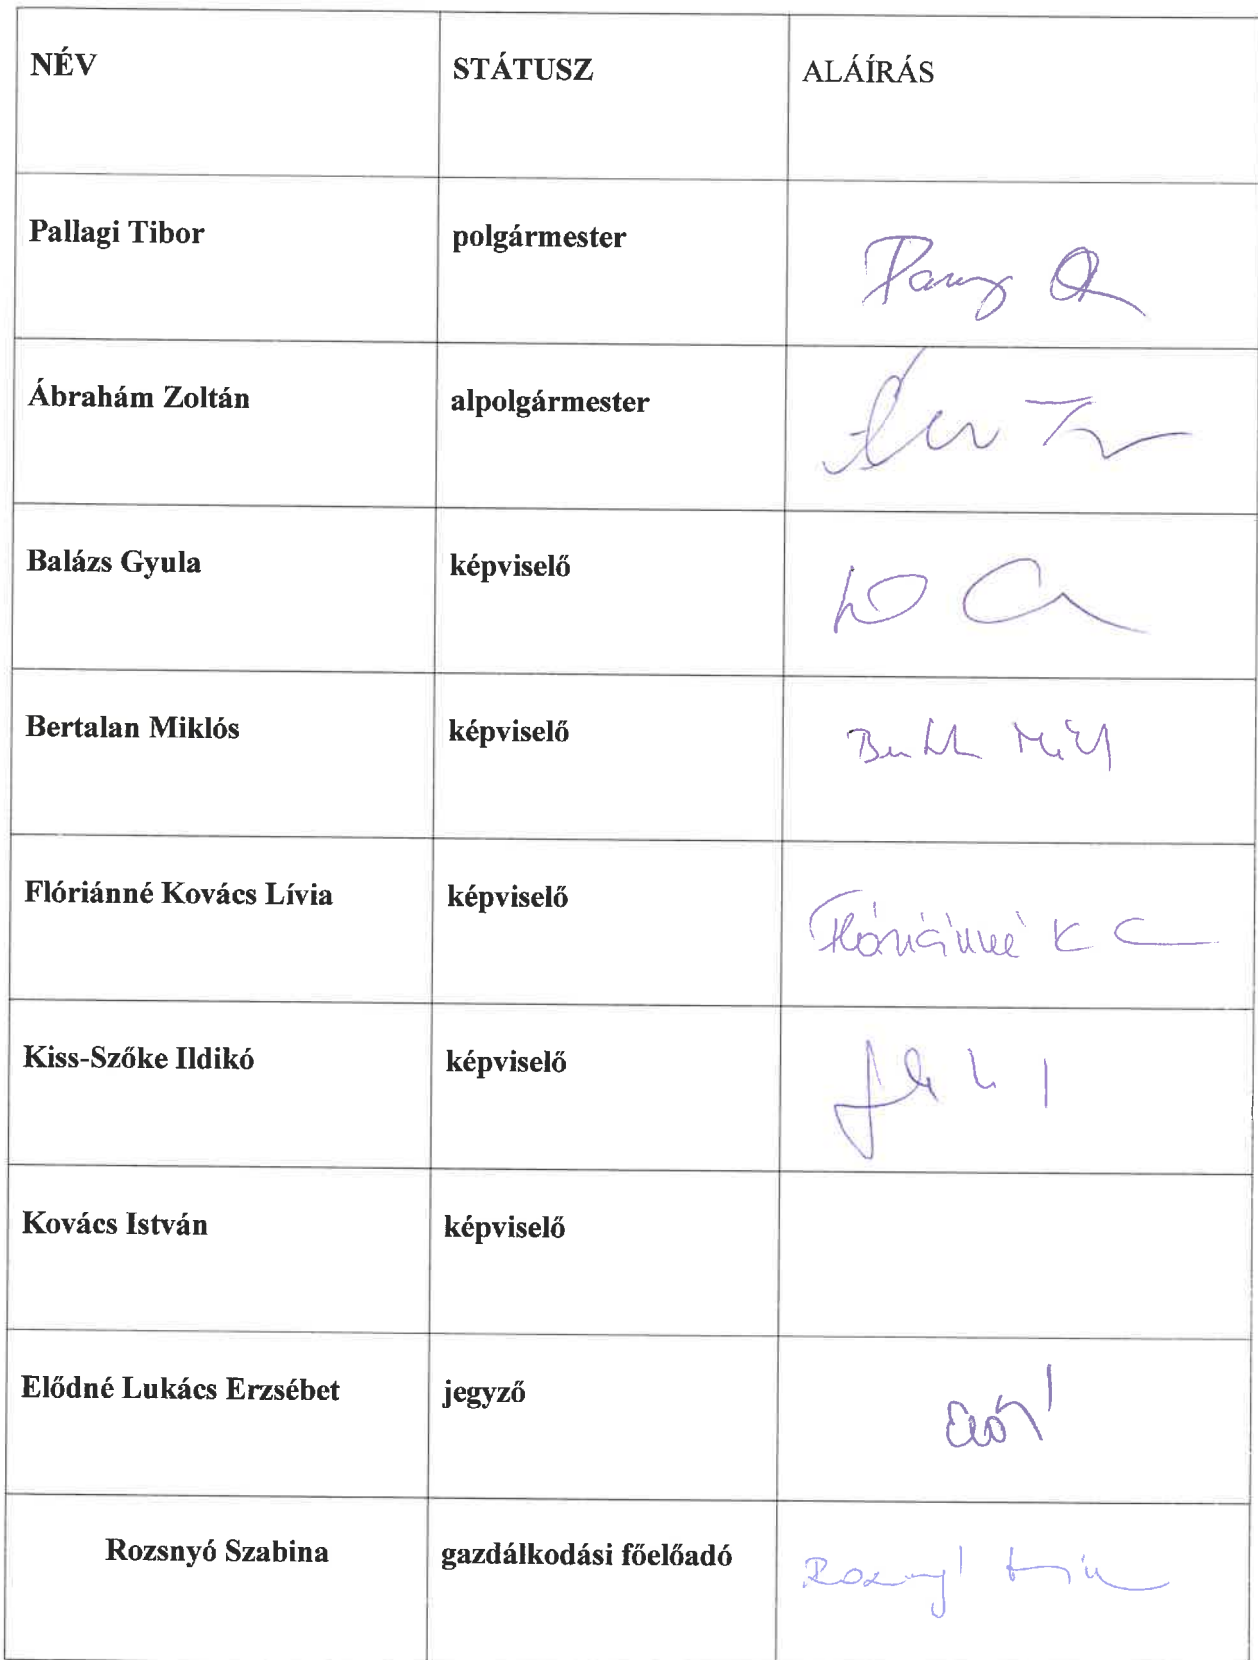 NÉV STÁTUSZ ALÁÍRÁS
Pallagi Tibor polgármester
Ábrahám Zoltán alpolgármester
Balázs Gyula képviselő
Bertalan Miklós képviselő
Flóriánné Kovács Lívia képviselő Flóriánné K
Kiss-Szőke Ildikó képviselő
Kovács István képviselő
Elődné Lukács Erzsébet jegyző
Rozsnyó Szabina gazdálkodási főelőadó